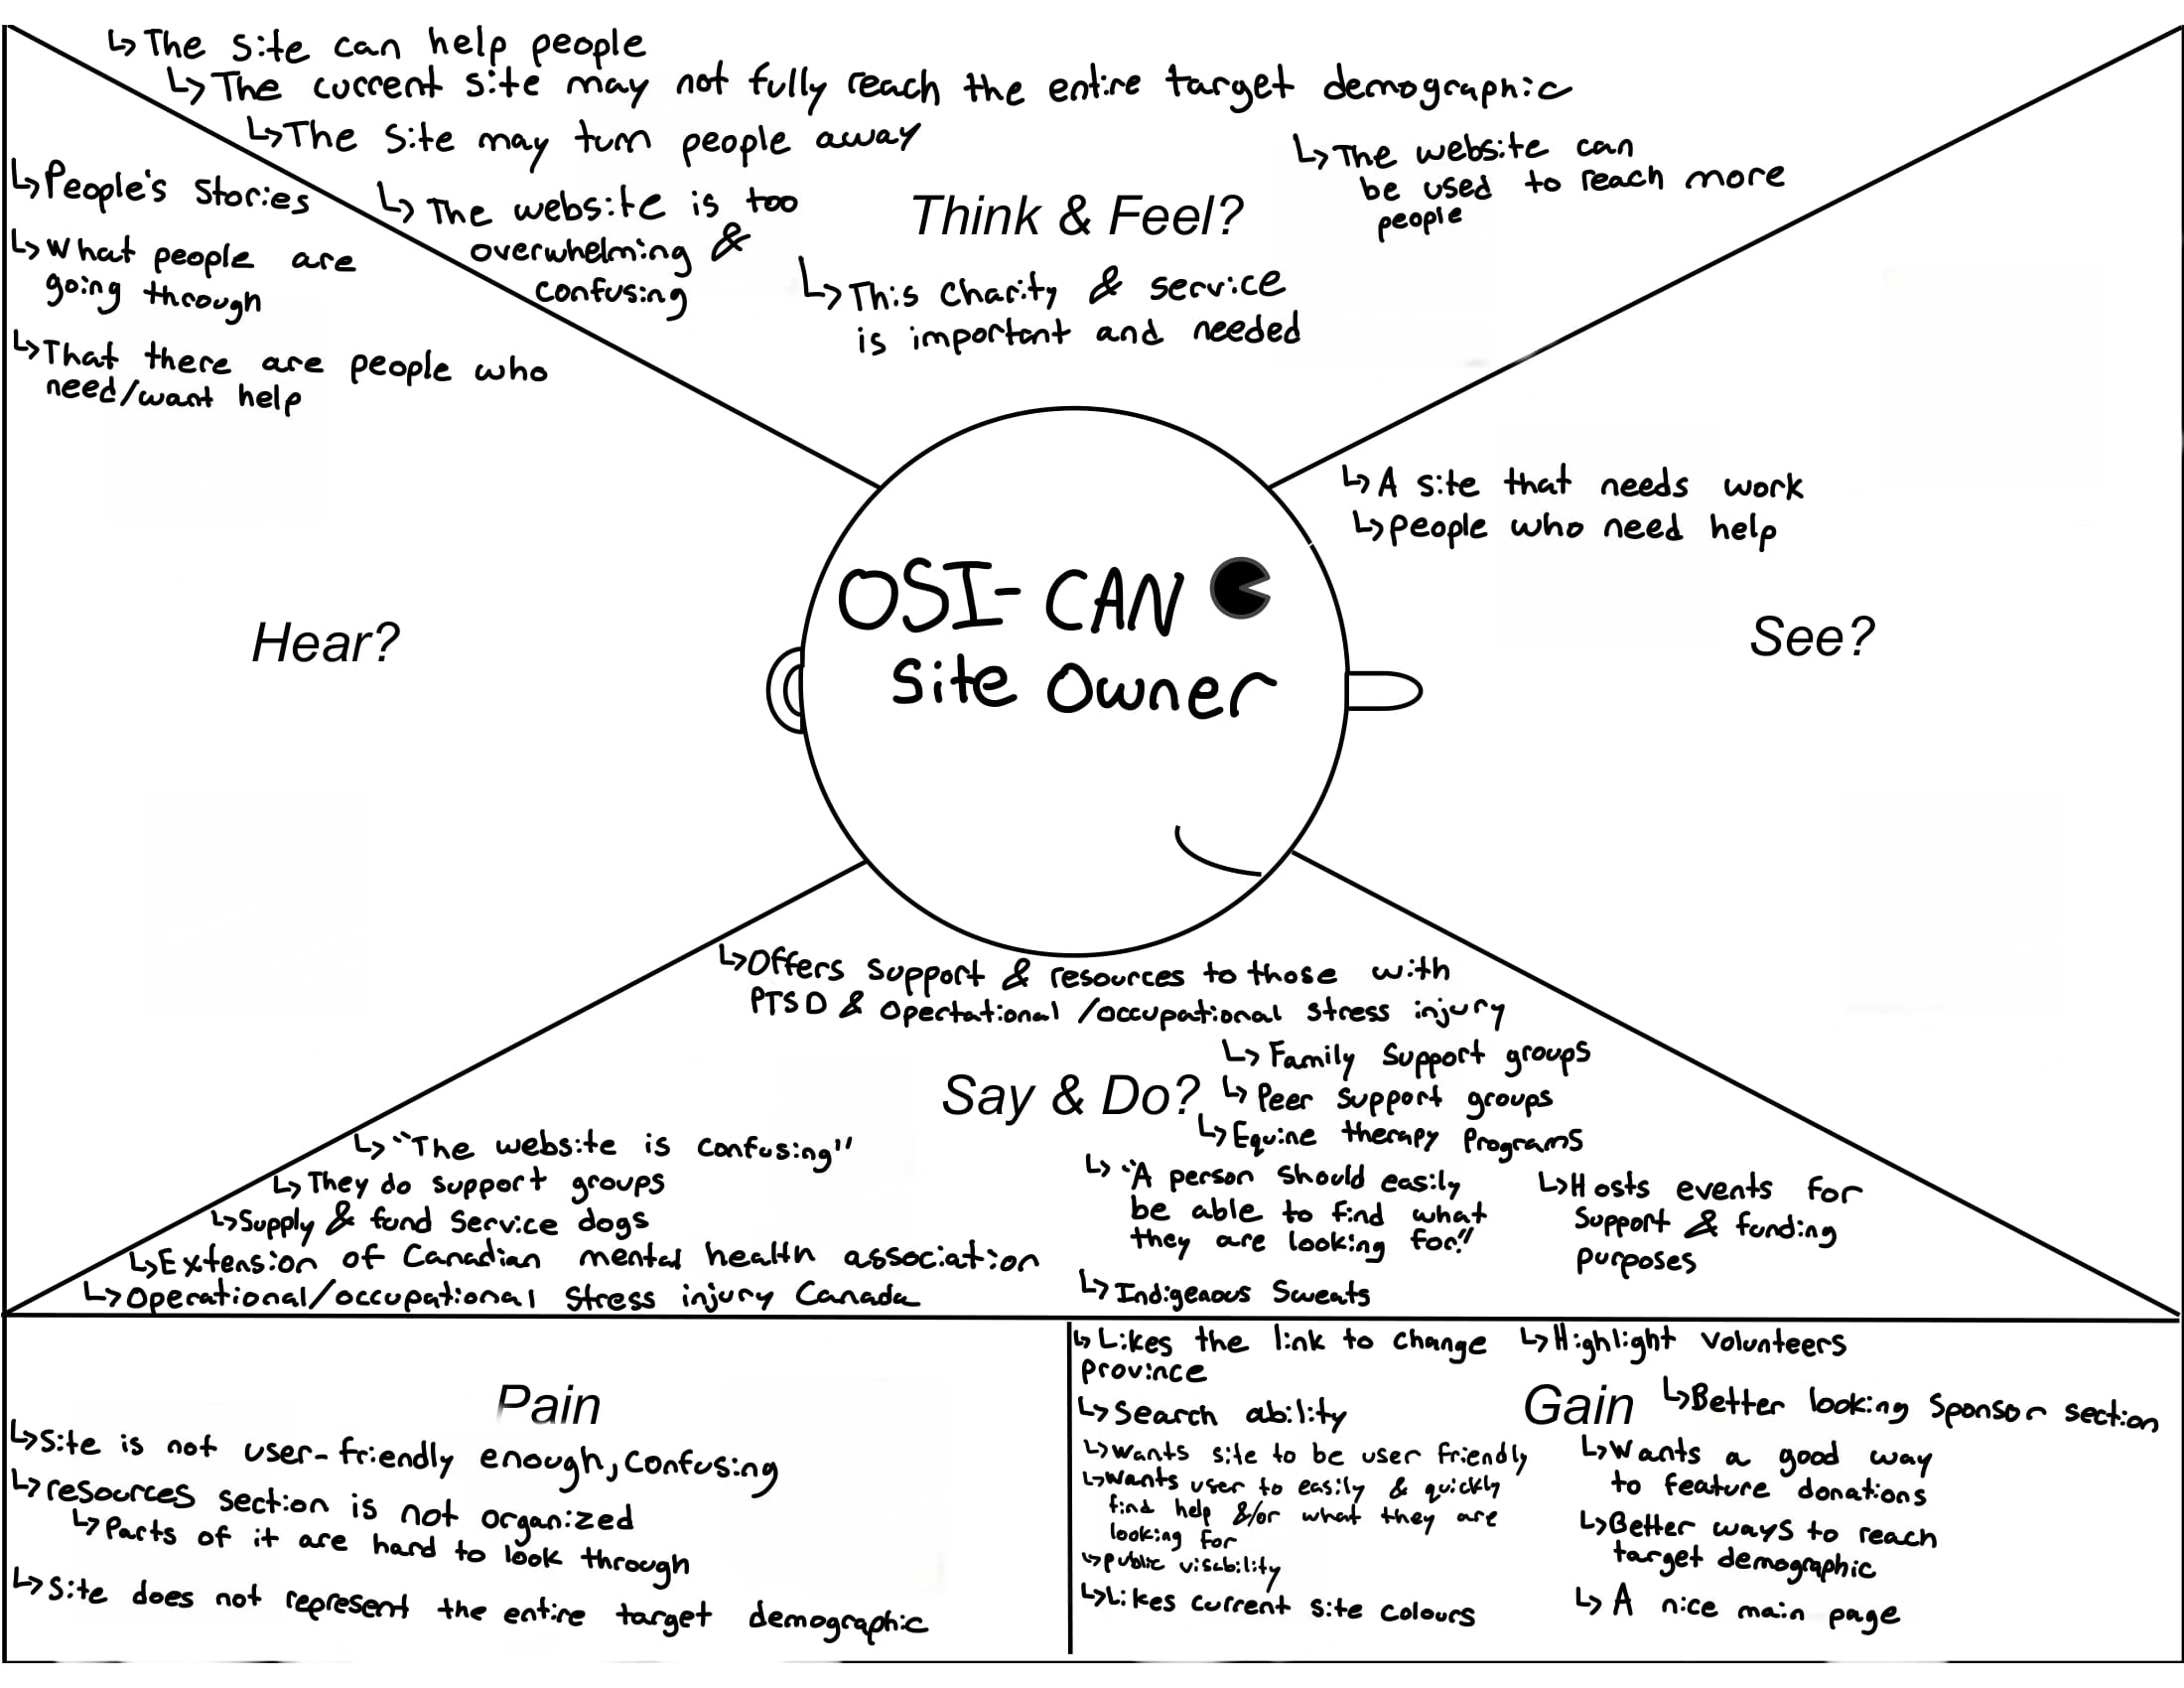 ↳ The site can help people
↳ The current site may not fully reach the entire target demographic
↳ The site may turn people away
↳ The website is too
overwhelming &
confusing
Think & Feel?
↳ This charity & service
is important and needed
↳ The website can
be used to reach more
people
↳ People's stories
↳ What people are
going through
↳ That there are people who
need/want help
Hear?
OSI-CAN
Site Owner
↳ A site that needs work
↳ people who need help
See?
↳ Offers support & resources to those with
PTSD & Opertational /occupational stress injury
↳ Family Support groups
Say & Do?
↳ Peer support groups
↳ Equine therapy Programs
↳ "The website is confusing"
↳ They do support groups
↳ Supply & fund Service dogs
↳ Extension of Canadian mental health association
↳ Operational/occupational stress injury Canada
↳ "A person should easily
be able to find what
they are looking for."
↳ Indigenous Sweats
↳ Hosts events for
support & funding
purposes
Pain
↳ Site is not user-friendly enough, confusing
↳ resources section is not organized
↳ Parts of it are hard to look through
↳ Site does not represent the entire target demographic
↳ Likes the link to change
province
↳ Search ability
↳ Wants site to be user friendly
↳ Wants user to easily & quickly
find help &/or what they are
looking for
↳ public visibility
↳ Likes current site colours
↳ Highlight volunteers
Gain
↳ Better looking sponsor section
↳ Wants a good way
to feature donations
↳ Better ways to reach
target demographic
↳ A nice main page